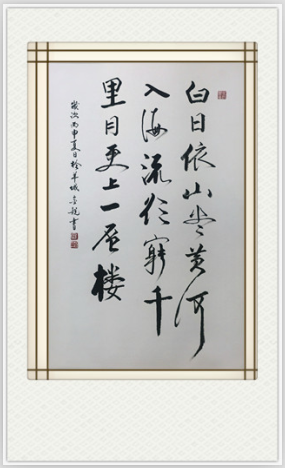 白日依山尽黄河
入海流欲窮千
里目更上一层楼
歲次丙申夏日於羊城書